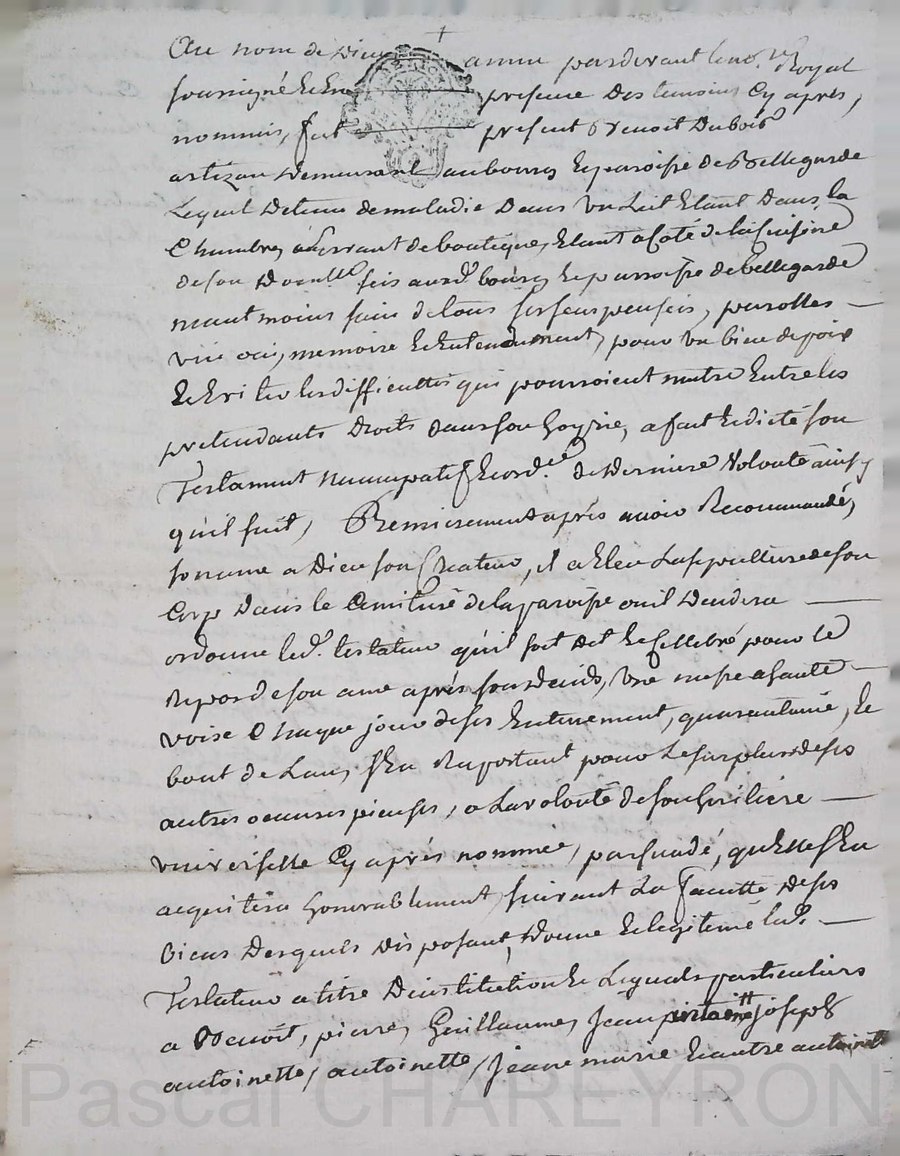 Au nom de Dieu amen pardevant le no.re Royal
soussigné & En presence des temoins cy apres,
nommés, fut present Benoit Dubois
artizan demeurant au bourg & paroisse de Bellegarde
Lequel detenu de maladie dans un Lit Etant dans la
Chambre, de boutique, Etant a coté de la cuisine
de son domille sis aud. bourg & parroisse de bellegarde
neantmoins sain de tous ses sens pensées, parolles
vüe ouie, memoire & Entendement, pour un bien de paix
& Eviter les difficultés qui pourroient naitre Entre les
pretendants droits dans son hoyrie, a fait & dicté son
Testament nuncupatif & ord.ce de derniere volonté ainsy
qu'il suit, Premierement apres avoir Recommandé,
son ame a Dieu son Createur, il a Eleu La sepoulture de son
Corp dans le Cemitiere de la paroisse ou il decedera
ordonne led. testateur qu'il soit dit & cellebré pour le
Repos de son ame apres son deceds, une messe a haute
voise Chaque jour de ses Enterrement, quarantaine, &
bout de L'an, s'En Raportant pour Le surplus de ses
autres oeuvres pieuses, a La volonté de son heritiere
universelle Cy apres nommée, persuadé, qu'Elle s'En
acquitera honorablement, suivant La faculté de ses
biens Desquels disposant, donne & legitime led.
Testateur a titre d'institution & Leguats particuliers
a Benoit, pierre, Guillaume, Jean joseph
antoinette, antoinette, Jeane marie & autre antoinette
Pascal CHAREYRON